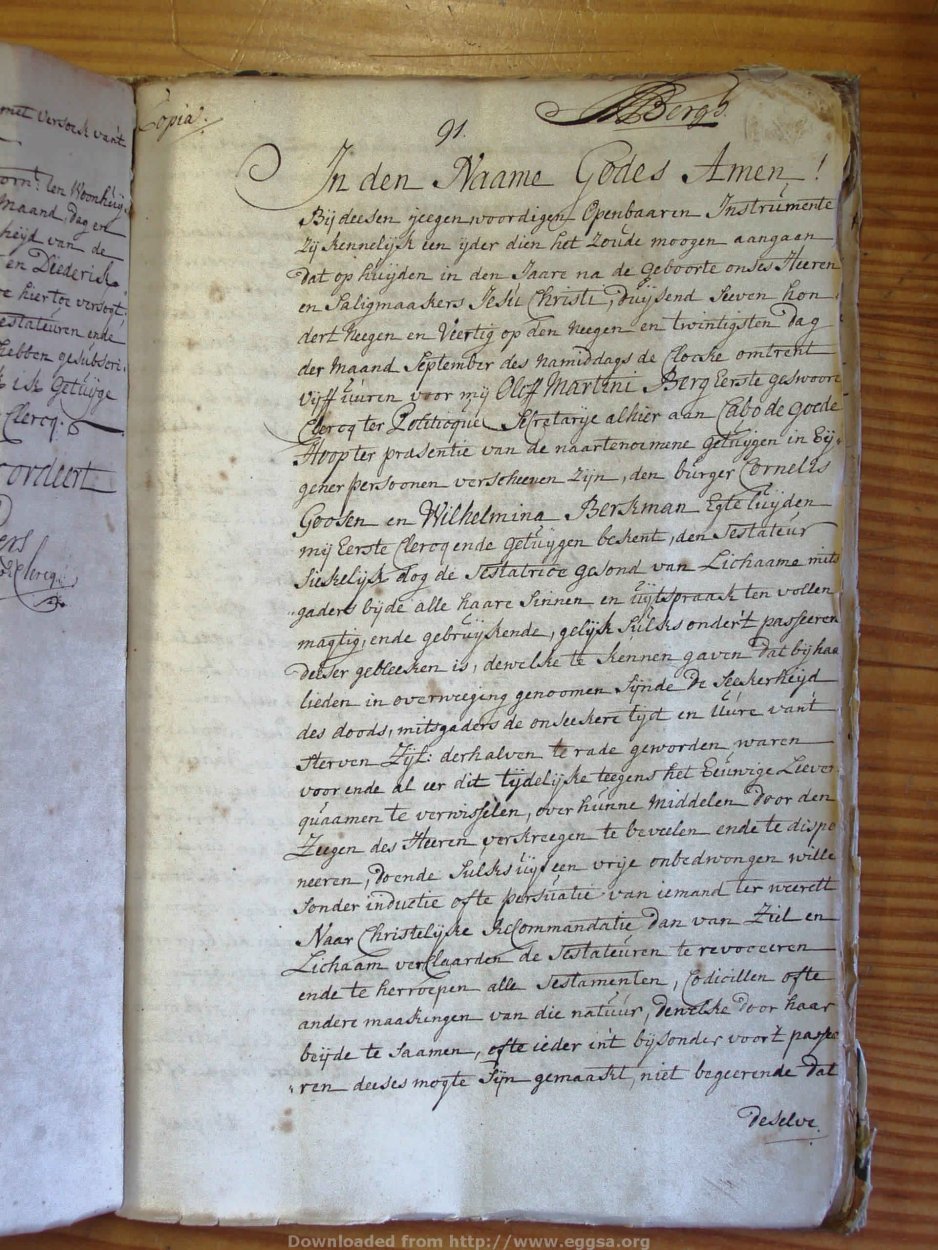 met versoek van't
oorn: ten Woonhuij
maand, dag en
heijd van de
en Diederik
re hier toe versogt,
estateuren ende
hebben gesubscri
ik Getuijge
Clercq.
cordeert
Clercq:
Copia.
OMBergh.
91.
In den Naame Godes Amen !
Bij deesen jeegenwoordigen Openbaaren Instrumente
Zij kennelijk een ijder dien het Zoude moogen aangaan
dat op huijden in den Jaare na de Geboorte onses Heeren
en Saligmaakers Jesu Christi, duijsend Seeven hon
dert Neegen en Veertig op den Neegen en twintigsten dag
der Maand September des namiddags de Clocke omtrent
vijff uuren voor mij Oloff Martini Berg Eerste geswoore
Clercq ter Politicque Secretarije alhier aan Cabo de Goede
Hoop ter præsentie van de naartenoemene getuijgen in Eij
gener persoonen verscheenen Zijn, den burger Cornelis
Goosen en Wilhelmina Berkman Egte luijden
mij Eerste Clercq ende getuijgen bekent, den Testateur
Siekelijk dog de Testatrice gesond van Lichaame mits
gaders bijde alle haare Sinnen en uijtspraak ten vollen
magtig, ende gebruijkende, gelijk Sulks onder't passeeren
deeser gebleeken is, dewelke te kennen gaven dat bij haa
lieden in overweeging genoomen Sijnde de Seekerheijd
des doods, mitsgaders de onseekere tijd en Uure van't
Sterven Zijl: derhalven te rade geworden waren
voor ende al eer dit tijdelijke teegens het Eeuwige Leeven
quaamen te verwisselen, over hunne Middelen door den
Zeegen des Heeren verkreegen te beveelen ende te dispo
neeren, doende Sulks uijt een vrije onbedwongen wille
Sonder inductie ofte persuatie van iemand ter weerelt
Naar Christelijke ReCommandatie dan van Ziel en
Lichaam verClaarden de Testateuren te revoceeren
ende te herroepen alle Testamenten, Codicillen ofte
andere maakingen van die natuur, dewelke door haar
beijde te Saamen, ofte ieder in't bijsonder voor't passee
ren deeses mogte Sijn gemaakt, niet begeerende dat
deselve.
Downloaded from http://www.eggsa.org